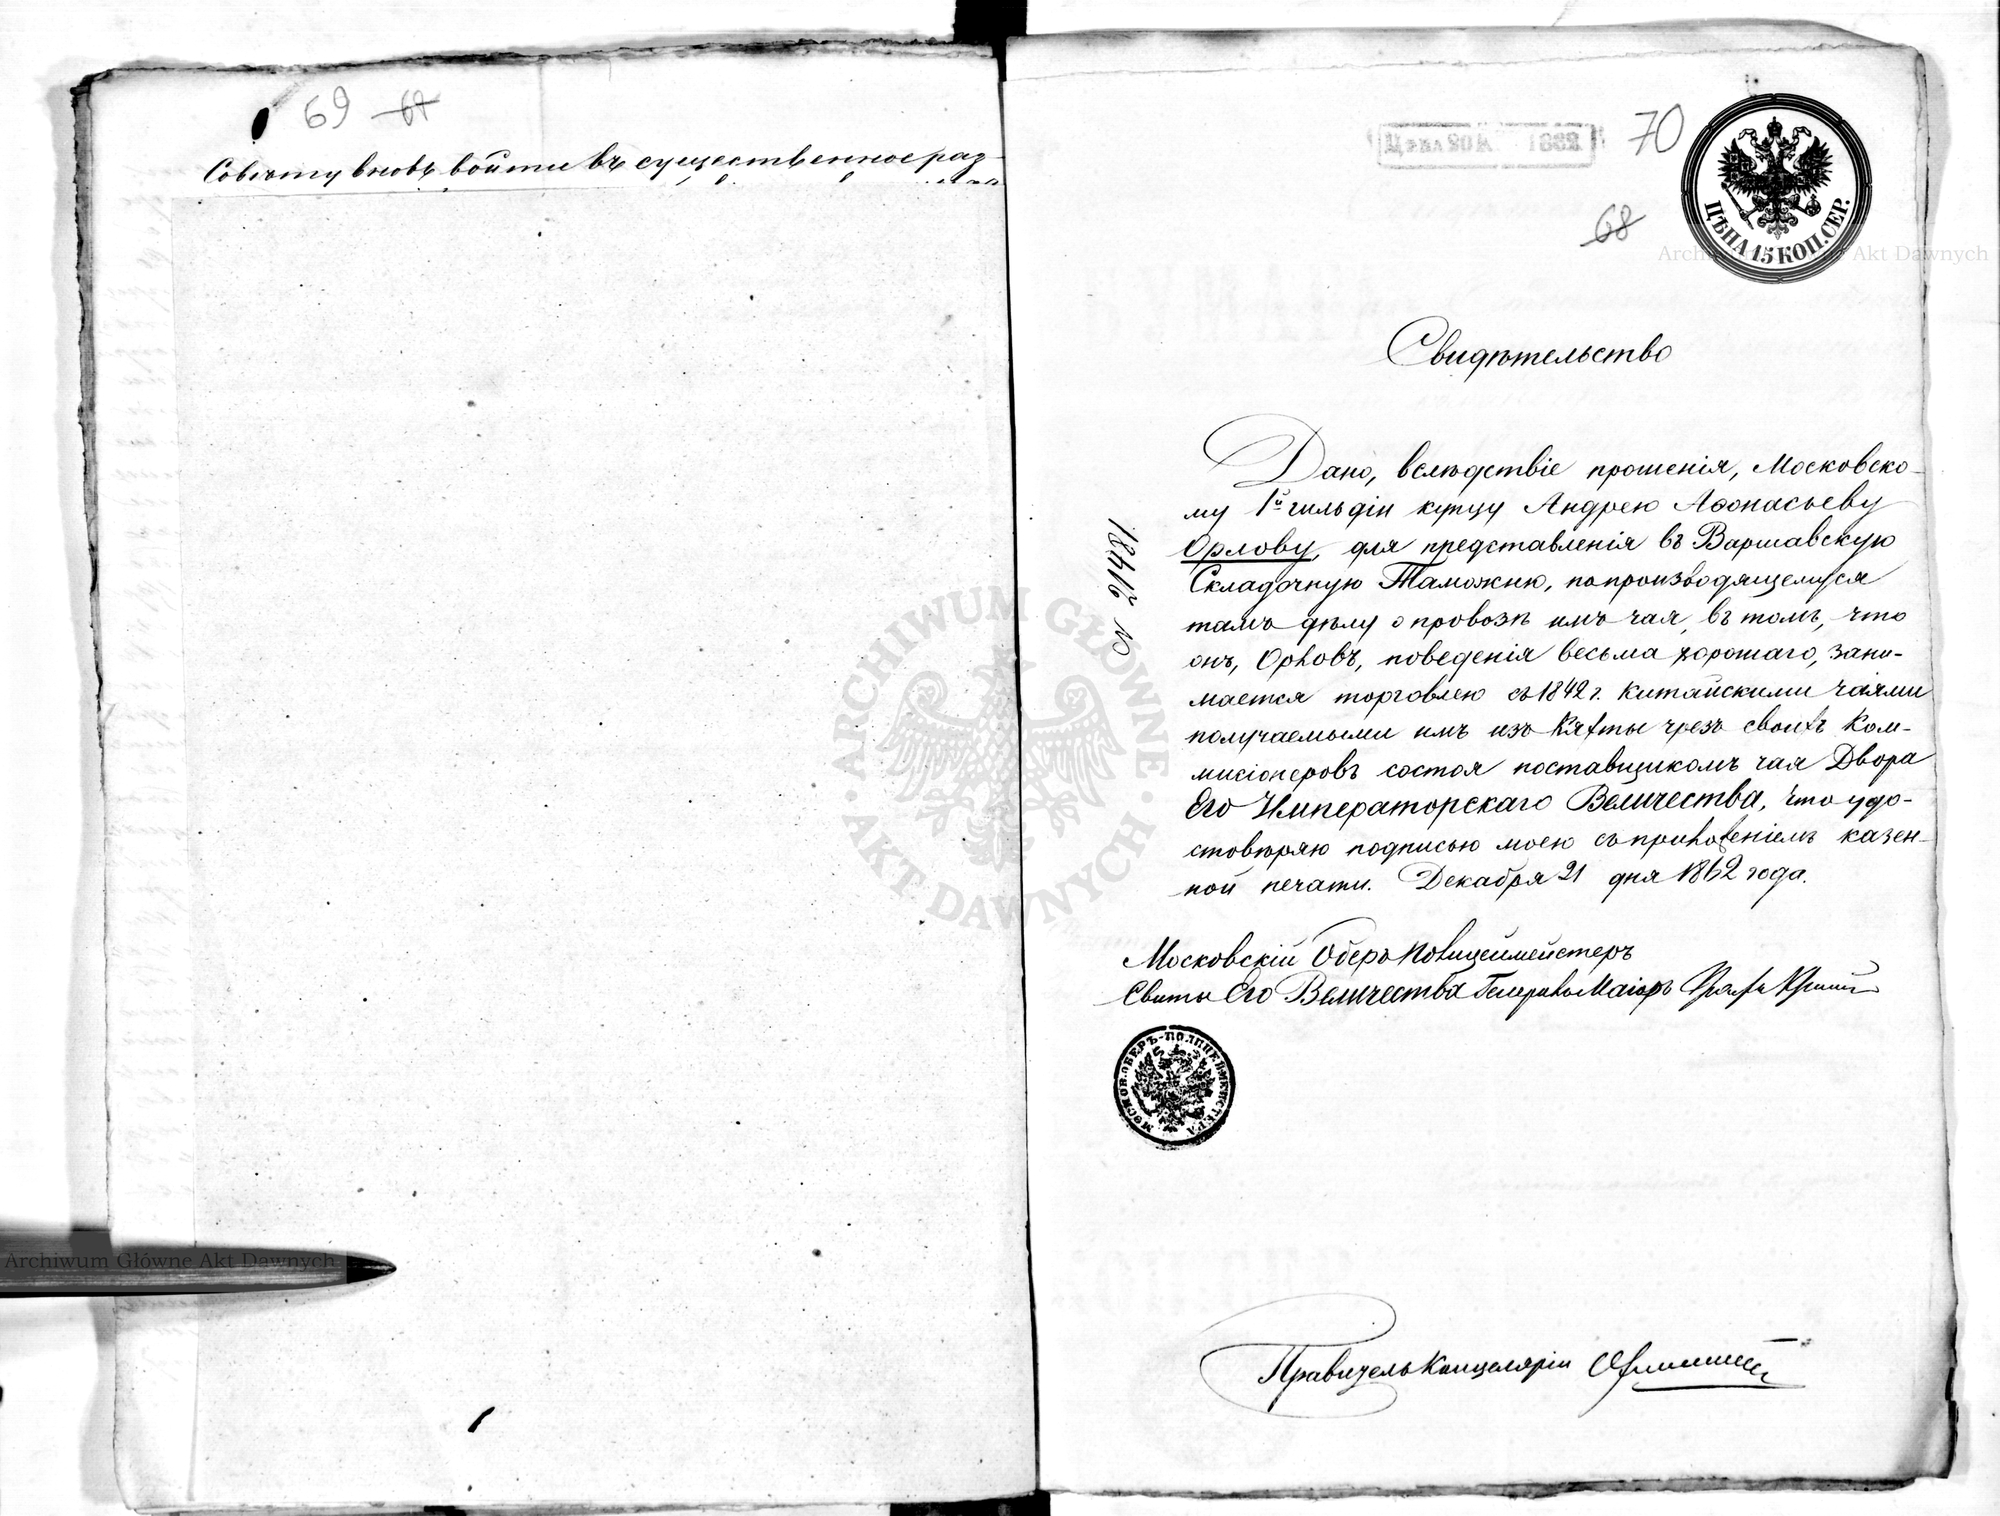 69 67
Совѣту вновь войти въ существенное раз-
Цѣна 20 к. 1862
70
68
ЦѢНА 15 КОП. СЕР.
Archiwum Główne Akt Dawnych
Свидѣтельство
Дано, вслѣдствіе прошенія, Московско-
му 1й гильдіи купцу Андрею Аѳонасьеву
Орлову, для представленія въ Варшавскую
Складочную Таможню, по производящемуся
тамъ дѣлу о провозѣ имъ чая, въ томъ, что
онъ, Орловъ, поведенія весьма хорошаго, зани-
мается торговлею съ 1842 г. Китайскими чаями
получаемыми имъ изъ Кяхты чрезъ своихъ Ком-
мисіонеровъ состоя поставщикомъ чая Двора
Его Императорскаго Величества, что удо-
стовѣряю подписью моею съ приложеніемъ казен-
ной печати. Декабря 21 дня 1862 года.
№ 18412
Московскій Оберъ Полицеймейстеръ
Свиты Его Величества Генералъ Маіоръ Графъ
МОСКОВ. ОБЕРЪ-ПОЛИЦЕЙМЕЙСТЕРА
Правитель Канцеляріи
ARCHIWUM GŁÓWNE · AKT DAWNYCH ·
Archiwum Główne Akt Dawnych